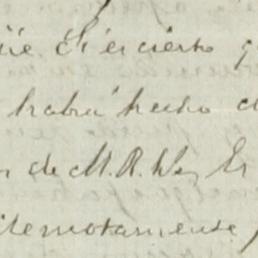 üe Si es cierto q
habrá hecho d
de M. R. Wey. Er
Remotamente,